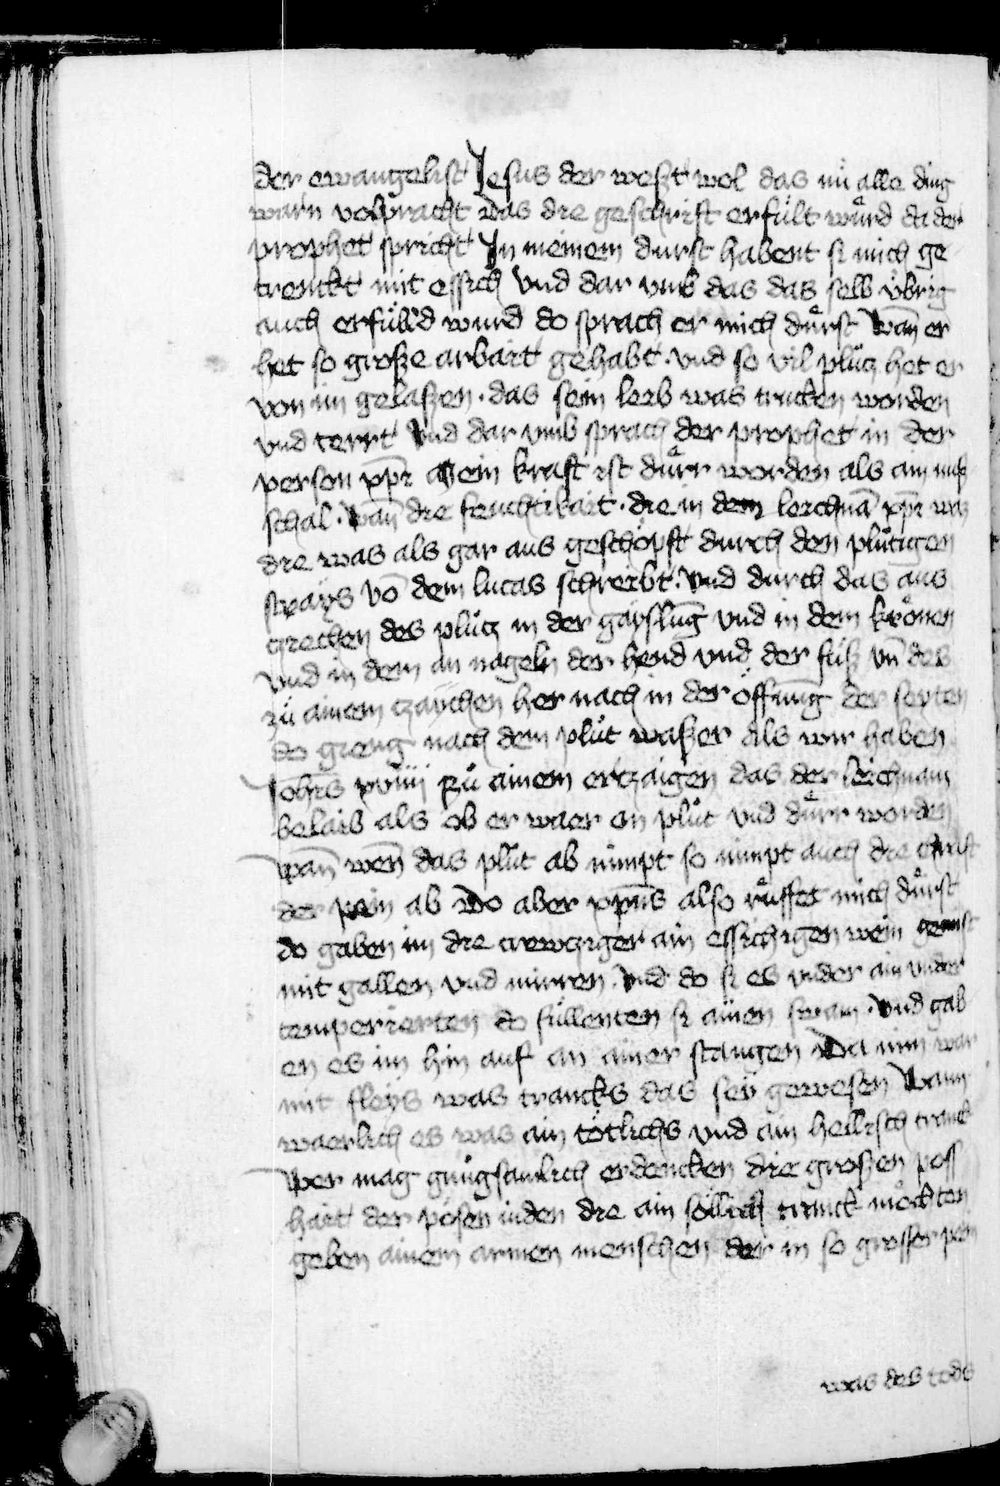 der ewangelist Jesus der weszt wol das nu alle ding
warn volpracht das die geschrift erfült würd da der
prophet spricht In meinem durst habent si mich ge
trenckt mit essich vnd dar vmb das das selb übrig
auch erfüllt wurd do sprach er mich dürst wan̄ er
het so grosze arbait gehabt · vnd so vil plütz het er
von im gelaszen · das sein leib was trucken worden
vnd derrt vnd dar vmb sprach der prophet in der
person xp̄i Mein kraft ist dürr worden als ain nusz
schal · wan̄ die feuchtikait · die in dem leichnā xp̄i waz
die was als gar aus geschöpft durch den plütigen
sways vō dem lucas schreibt · vnd durch das aus
grechen des plütz in der gayslūg vnd in dem krönen
vnd in dem an nageln der hend vnd der füsz vn̄ des
zü ainem czaychen her nach in der öffnūg der seyten
do gieng nach dem plüt waszer als wir haben
Joh̄is xviiij zü ainem ertzaigen das der leichnam
belaib als ob er waer on plüt vnd dürr worden
wan̄ wen̄ das plüt ab nimpt so nimpt auch die chraft
der pein ab Do aber xp̄us also rüffet mich dürst
do gaben im die crewtziger ain essichigen wein gemist
mit gallen vnd mirren · vnd do si es vnder ain vnder
temperierten do füllenten si ainen swam · vnd gab
en es im hin auf an ainer stangen Da nim war
mit fleys was trancks das sey gewesen wann
waerlich es was ain tötlichs vnd ain hellisch tranck
wer mag gnügsamlich erdencken die groszen pos
hait der pösen iuden die ain söllich tranck möchten
geben ainem armen menschen der in so grosser pein
was des tods